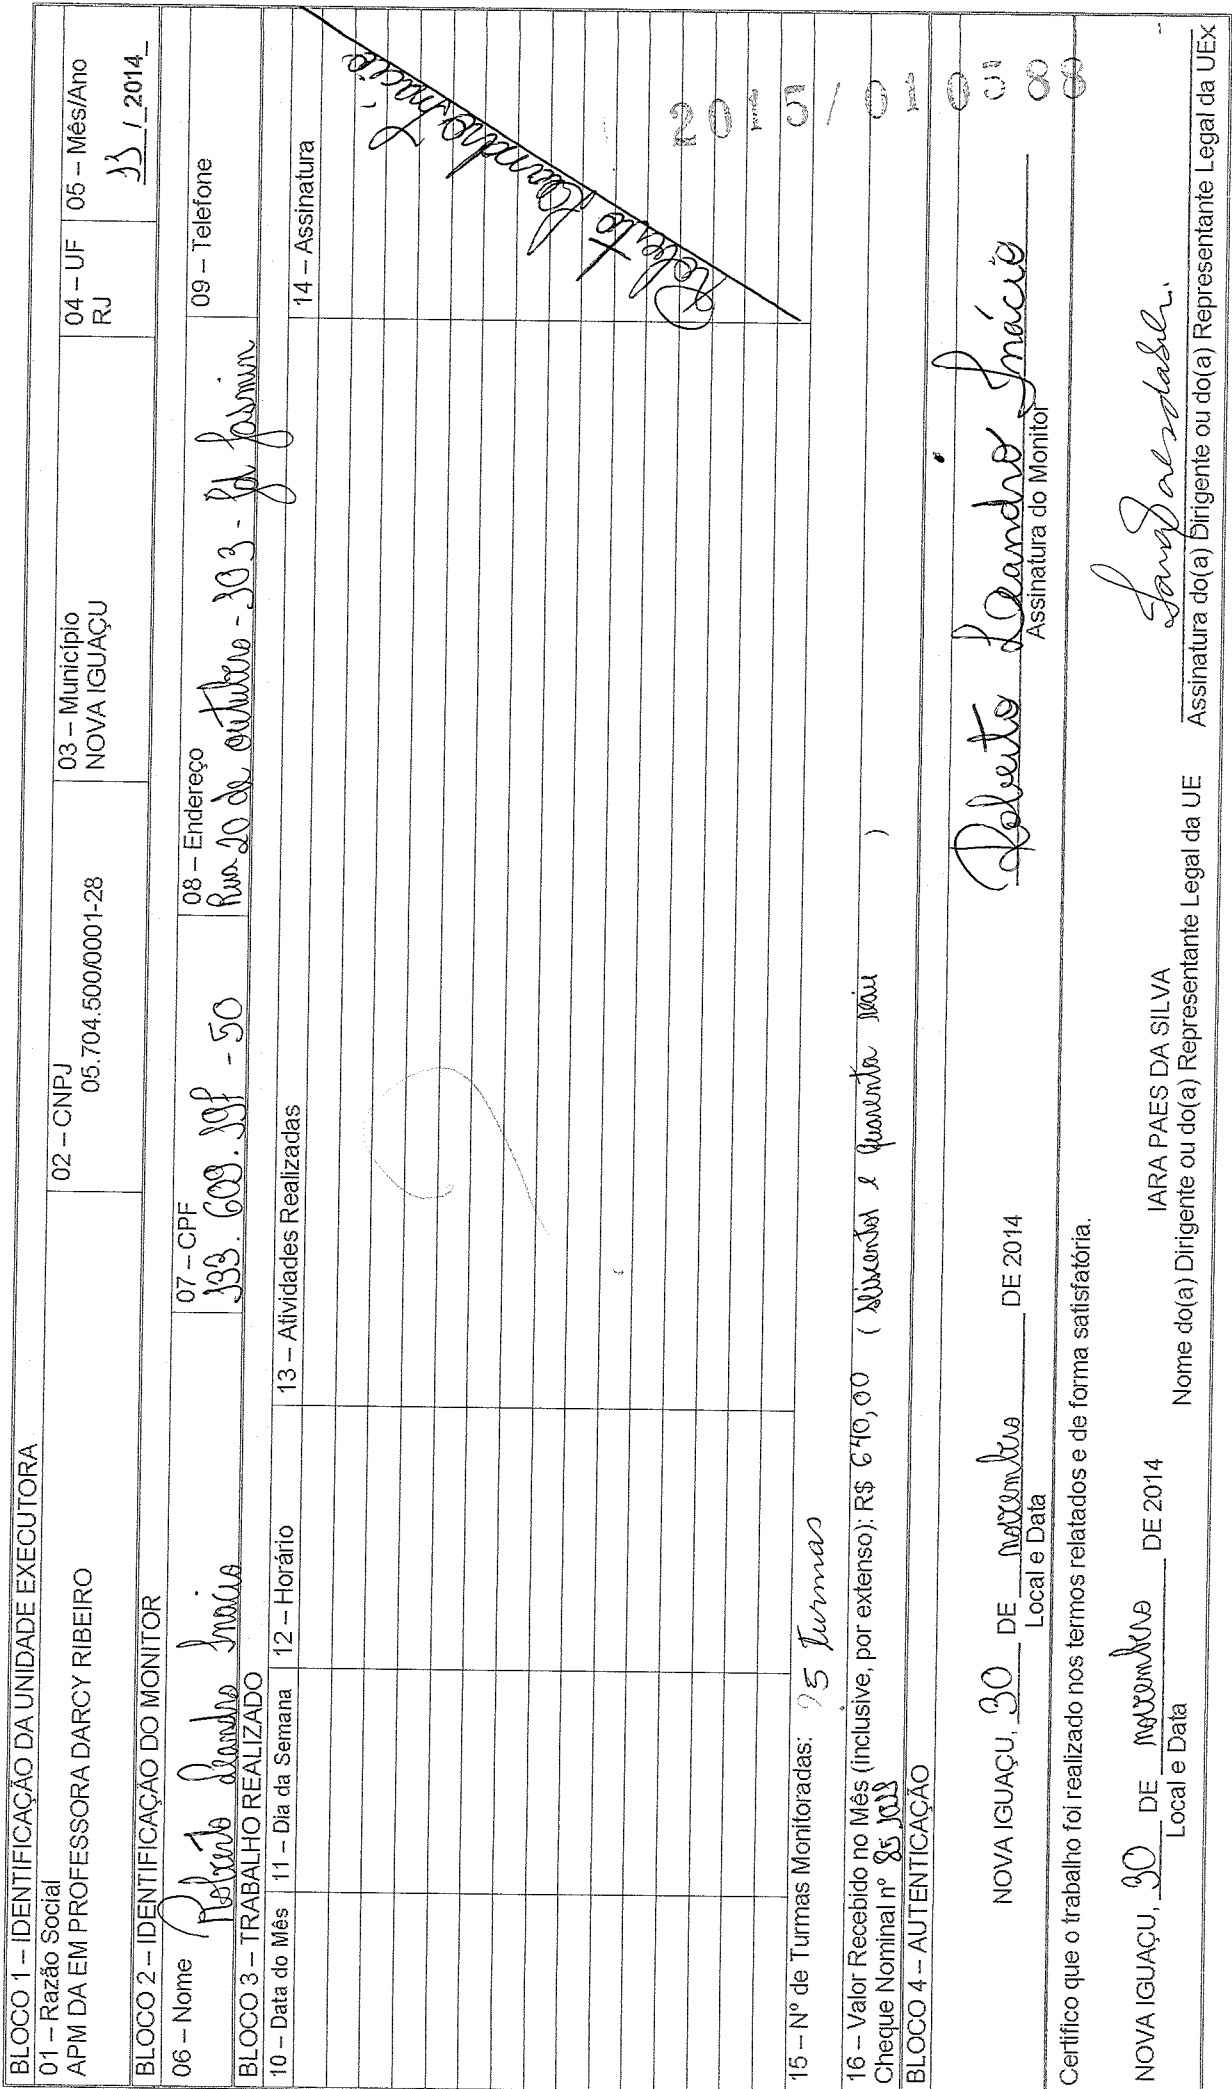 BLOCO 1 – IDENTIFICAÇÃO DA UNIDADE EXECUTORA
01 – Razão Social
APM DA EM PROFESSORA DARCY RIBEIRO
02 – CNPJ
05.704.500/0001-28
03 – Município
NOVA IGUAÇU
04 – UF
RJ
05 – Mês/Ano
11 / 2014
BLOCO 2 – IDENTIFICAÇÃO DO MONITOR
06 – Nome Roberto Leandro Inácio
07 – CPF
133.609.197-50
08 – Endereço
Rua 20 de outubro - 103 - Jd Jasmin
09 – Telefone
BLOCO 3 – TRABALHO REALIZADO
10 – Data do Mês
11 – Dia da Semana
12 – Horário
13 – Atividades Realizadas
14 – Assinatura
Roberto Leandro Inácio
15 – Nº de Turmas Monitoradas: 5 Turmas
16 – Valor Recebido no Mês (inclusive, por extenso): R$ 640,00 ( seiscentos e quarenta reais )
Cheque Nominal nº
BLOCO 4 – AUTENTICAÇÃO
NOVA IGUAÇU, 30 DE novembro DE 2014
Local e Data
Roberto Leandro Inácio
Assinatura do Monitor
Certifico que o trabalho foi realizado nos termos relatados e de forma satisfatória.
NOVA IGUAÇU, 30 DE novembro DE 2014
Local e Data
IARA PAES DA SILVA
Nome do(a) Dirigente ou do(a) Representante Legal da UE
Iara Paes da Silva
Assinatura do(a) Dirigente ou do(a) Representante Legal da UEx